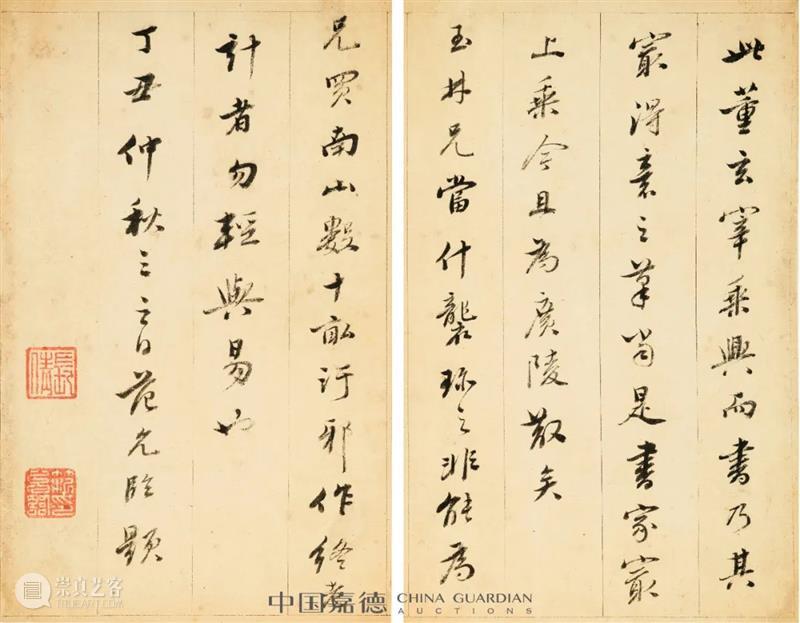 此董玄宰乘興而書乃其
最得意之筆當是書家最
上乘今且為廣陵散矣
玉林兄當什襲珍之非能為
兄買南山數十畝汙邪作終老
計者勿輕與易也
丁丑仲秋三之日范允臨題
長倩
中国嘉德 CHINA GUARDIAN AUCTIONS
崇真艺客